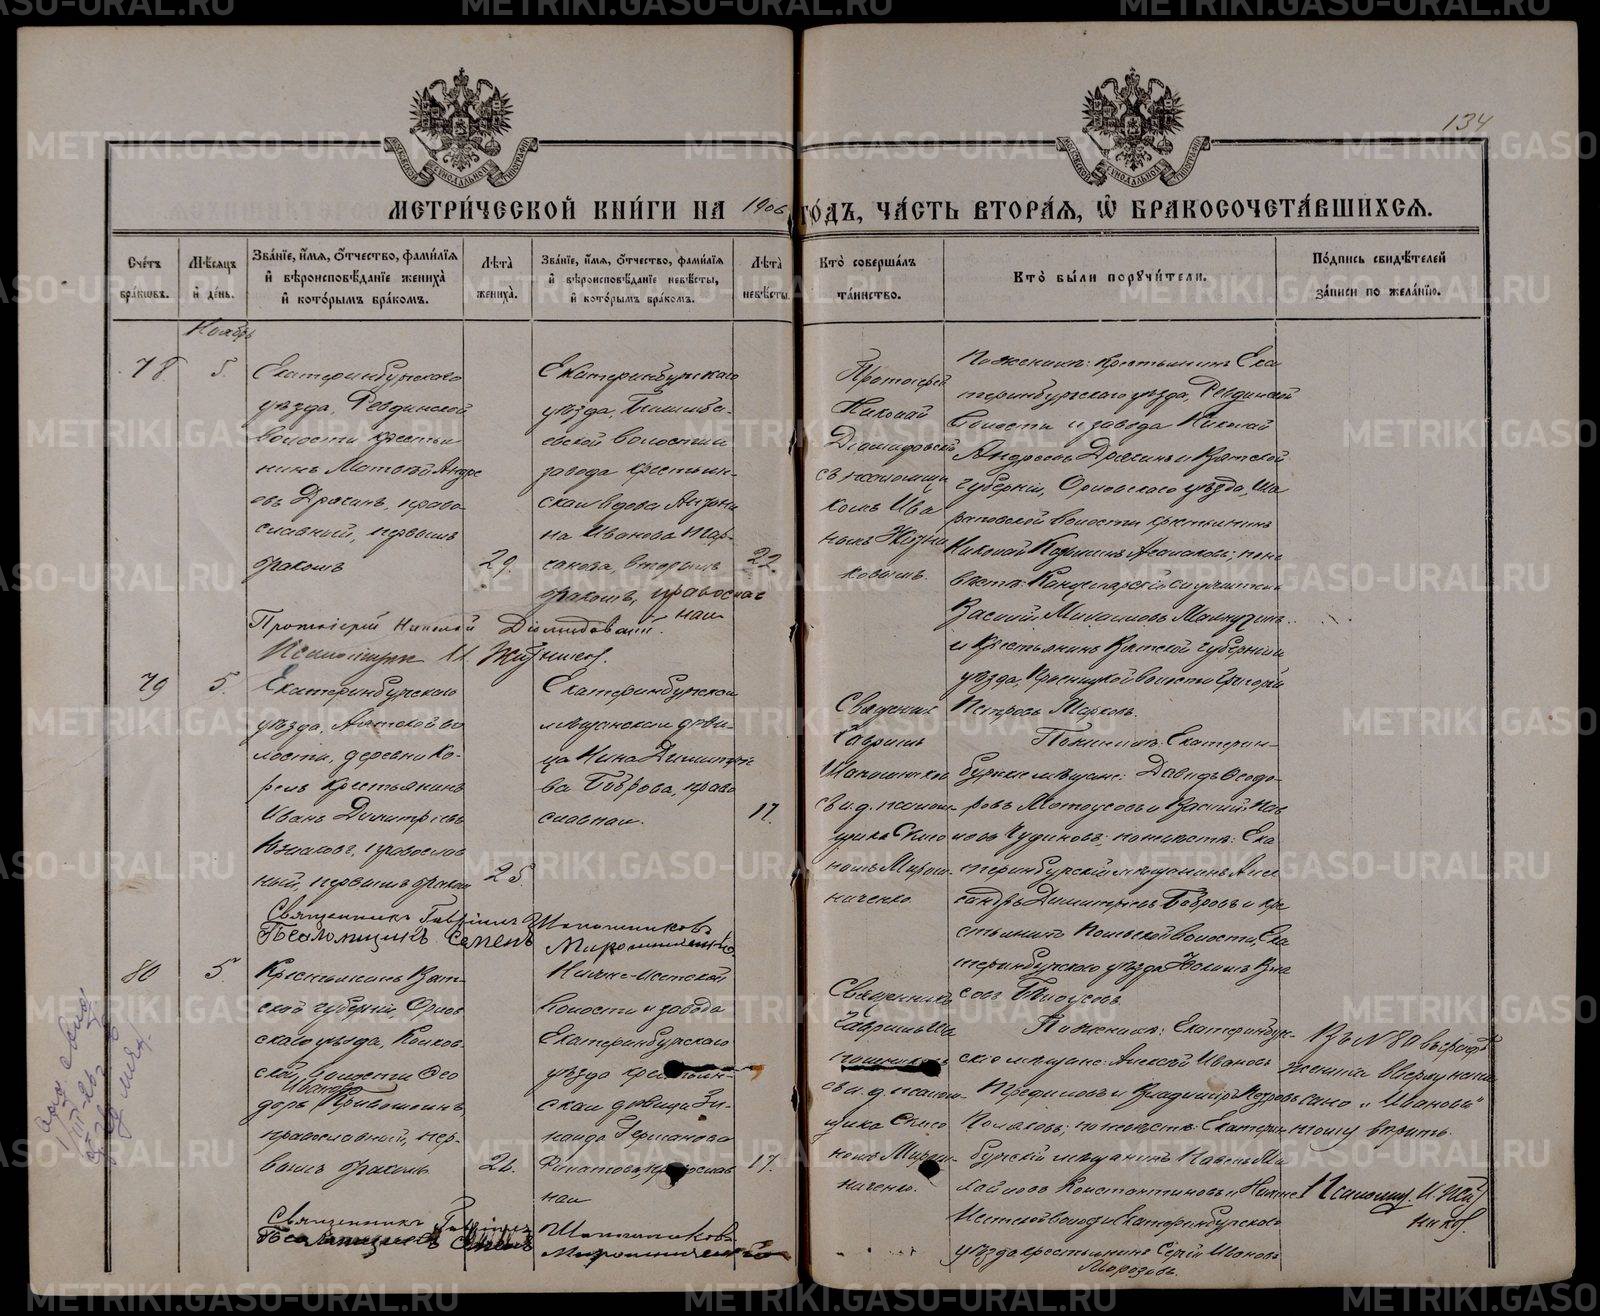 134
МЕТРИ́ЧЕСКОЙ КНИ́ГИ НА 1906 ГО́ДЪ, ЧА́СТЬ ВТОРА́Я, Ѡ҆ БРАКОСОЧЕТА́ВШИХСЯ.
Сче́тъ бра́кѡвъ.
Мѣ́сяцъ и҆ де́нь.
Зва́нїе, и҆́мя, ѻ҆́тчество, фами́лїя и҆ вѣроисповѣ́данїе жениха̀ и҆ кото́рымъ бра́комъ.
Лѣ́та жениха̀.
Зва́нїе, и҆́мя, ѻ҆́тчество, фами́лїя и҆ вѣроисповѣ́данїе невѣ́сты, и҆ кото́рымъ бра́комъ.
Лѣ́та невѣ́сты.
Кто̀ соверша́лъ та́инство.
Кто̀ бы́ли порꙋчи́тели.
По́дпись свидѣ́телей за́писи по жела́нїю.
Ноябрь
78
5
Екатеринбургскаго
уѣзда, Ревдинской
волости крестья
нинъ Матвѣй Андре
евъ Драгинъ, право
славный, первымъ
бракомъ
29.
Екатеринбургскаго
уѣзда, Билимба-
евской волости и
завода крестьян-
ская вдова Антони
на Иванова
вторымъ
бракомъ, православ
ная
22.
Протоіерей
Николай
Діомидовскій
съ псаломщи
комъ Ива
номъ Жит
никовымъ.
По женихѣ: крестьянинъ Ека
теринбургскаго уѣзда, Ревдинской
волости и завода Николай
Андреевъ Драгинъ и Вятской
губерніи, Орловскаго уѣзда, Ша
раповской волости крестьянинъ
Николай; по не
вѣстѣ: Канцелярскій служитель
Василій Михаиловъ
и крестьянинъ Вятской губерніи и
уѣзда, волости Григорій
Петровъ Марковъ.
Протоіерей Николай Діомидовскій.
Псаломщик И. Житников.
79
5.
Екатеринбургскаго
уѣзда, Аятской во
лости, деревни Ко-
релъ крестьянинъ
Иванъ Димитріевъ
православ
ный, первымъ бракомъ
25.
Екатеринбургская
мѣщанская дѣви-
ца Нина Димитріе
ва Боброва, право
славная.
17.
Священникъ
Гавріилъ
Шапошниковъ
съ и. д. псалом-
щика Симе
ономъ Мирош-
ниченко
По женихѣ: Екатерин-
бургскіе мѣщане: Давидъ Ѳеодо-
ровъ и Василій Пав
ловъ Чудиновъ; по невѣстѣ: Ека
теринбургскій мѣщанинъ Алек
сандръ Димитріевъ Бобровъ и кре
стьянинъ волости, Ека
теринбургскаго уѣзда
Бѣлоусовъ
Священникъ Гавріилъ Шапошниковъ
Псаломщикъ Семенъ Мирошниченко.
80
5.
Крестьянинъ Вят-
ской губерніи Орлов
скаго уѣзда,
ской волости Ѳео
доръ Ивановъ Кривошеинъ,
православный, пер-
вымъ бракомъ
21.
Нижне-Исетской
волости и завода
Екатеринбургскаго
уѣзда крестьян-
ская дѣвица Зи-
наида Германова
Филатова, православ
ная
17.
Священникъ
Гавріилъ Ша
пошниковъ
съ и. д. псалом-
щика Симе
ономъ Мирош-
ниченко.
По женихѣ: Екатеринбург-
скіе мѣщане: Алексѣй Ивановъ
и Владиміръ Петровъ
по невѣстѣ: Екатерин
бургскій мѣщанинъ Павелъ Ми
хайловъ Константиновъ и Нижне
Исетской волости Екатеринбургскаго
уѣзда крестьянинъ Сергѣй Ивановъ
Морозовъ.
Въ № 80 въ графѣ
жениха вверху напи
сано „Ивановъ"
тому вѣрить.
Псаломщ. И. Жит
ников.
Священникъ Гавріилъ Шапошниковъ
Псаломщикъ Семенъ Мирошниченко
METRIKI.GASO-URAL.RU